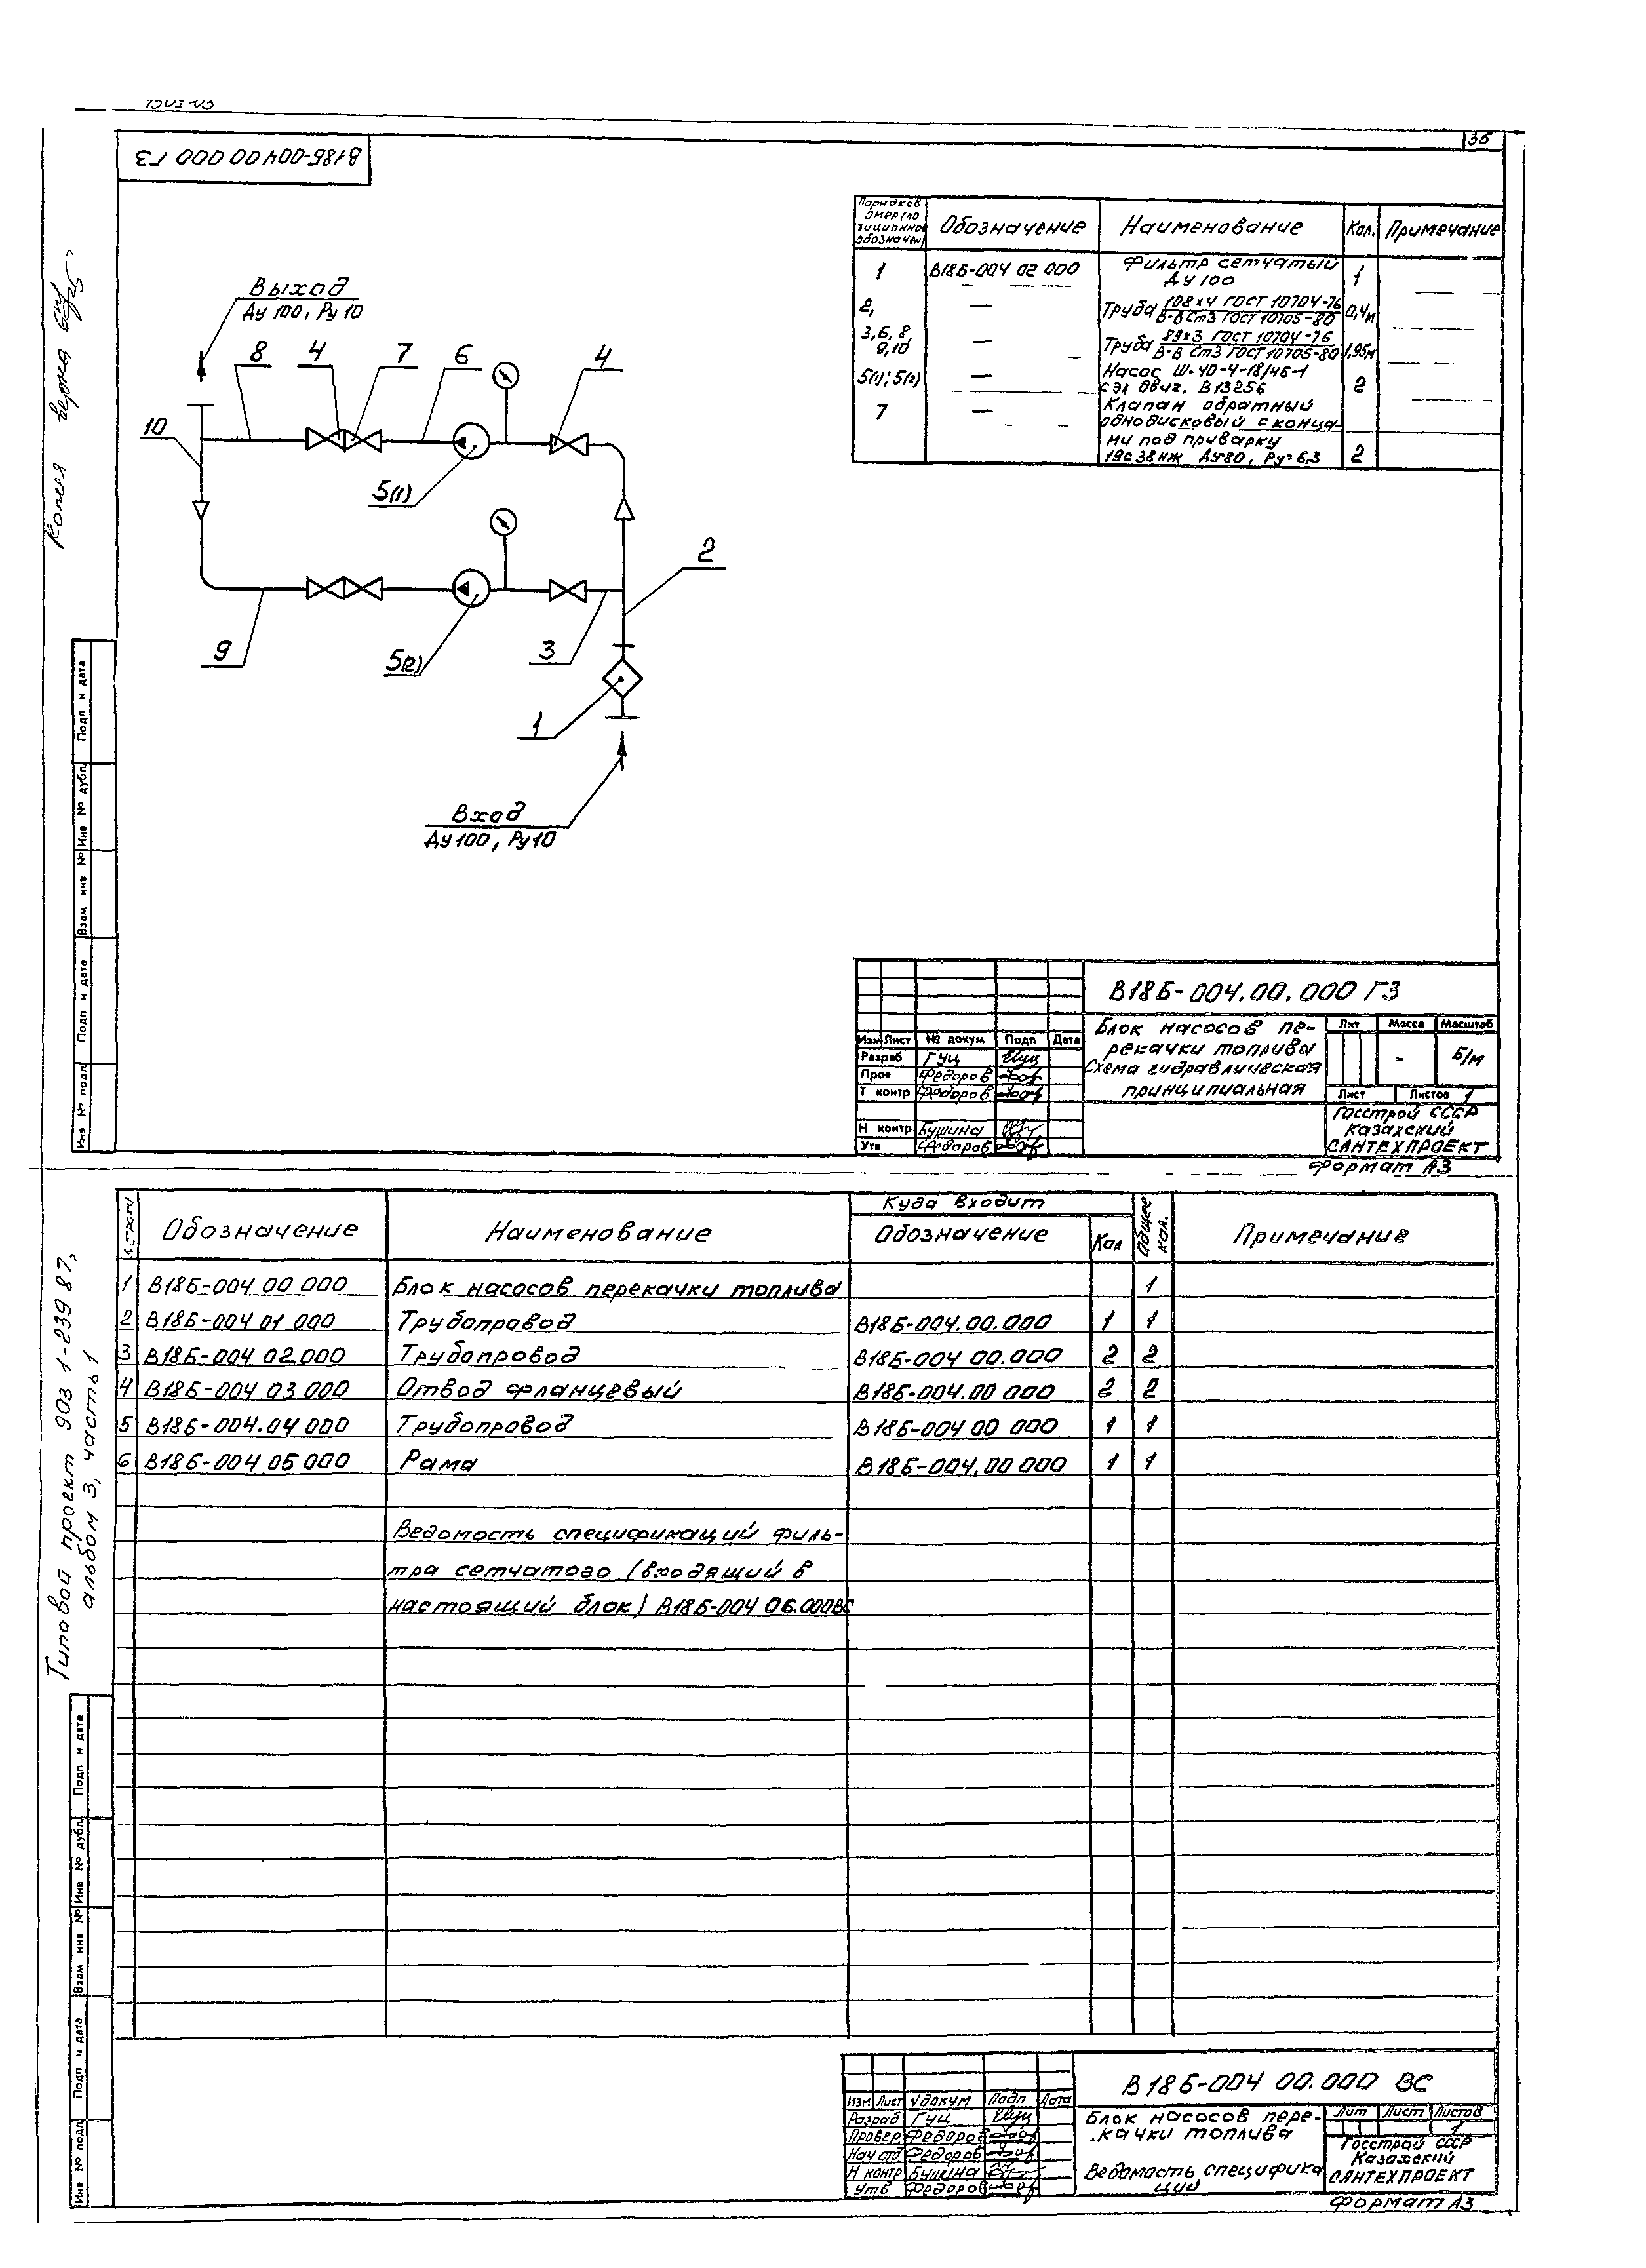 35
В18Б-004 00 000 Г3
Копия верна
Выход
Ду 100, Ру 10
8
4
7
6
4
10
5(1)
2
9
5(2)
3
1
Вход
Ду 100, Ру 10
Обозначение
Наименование
Кол.
Примечание
1
В18Б-004 02 000
Фильтр сетчатый
Ду 100
1
2,
—
Труба 108х4 ГОСТ 10704-76
В-В Ст3 ГОСТ 10705-80
0,4м
3, 6, 8
9, 10
—
Труба 89х3 ГОСТ 10704-76
В-В Ст3 ГОСТ 10705-80
1,95м
5(1); 5(2)
—
Насос Ш-40-4-18/4Б-1
с эл двиг. В132S6
2
7
—
Клапан обратный
однодисковый с конца-
ми под приварку
19с38нж Ду80, Ру=6,3
2
В18Б-004.00.000 Г3
Блок насосов пе-
рекачки топлива
Схема гидравлическая
принципиальная
Лит Масса Масштаб
- Б/м
Лист Листов 1
Госстрой СССР
Казахский
САНТЕХПРОЕКТ
Изм Лист № докум Подп Дата
Разраб Гуц
Пров Федоров
Т контр Федоров
Н контр Бушина
Утв Федоров
Формат А3
Подп и дата
Инв № дубл
Взам инв №
Подп и дата
Инв № подл
Типовой проект 903 1-239 87,
альбом 3, часть 1
Обозначение
Наименование
Куда входит
Обозначение
Кол
Общее
кол.
Примечание
1 В18Б-004 00 000 Блок насосов перекачки топлива 1
2 В18Б-004 01 000 Трубопровод В18Б-004.00.000 1 1
3 В18Б-004 02.000 Трубопровод В18Б-004 00.000 2 2
4 В18Б-004 03 000 Отвод фланцевый В18Б-004.00 000 2 2
5 В18Б-004.04 000 Трубопровод В18Б-004 00 000 1 1
6 В18Б-004 05 000 Рама В18Б-004.00 000 1 1
Ведомость спецификаций филь-
тра сетчатого (входящий в
настоящий блок) В18Б-004 06.000ВС
Подп и дата
Инв № дубл
Взам инв №
Подп и дата
Инв № подл
В18Б-004 00.000 ВС
Изм Лист № докум Подп Дата
Разраб Гуц
Провер Федоров
Нач отд Федоров
Н контр Бушина
Утв Федоров
Блок насосов пере-
качки топлива
Ведомость специфика
ций
Лит Лист Листов
1
Госстрой СССР
Казахский
САНТЕХПРОЕКТ
Формат А3